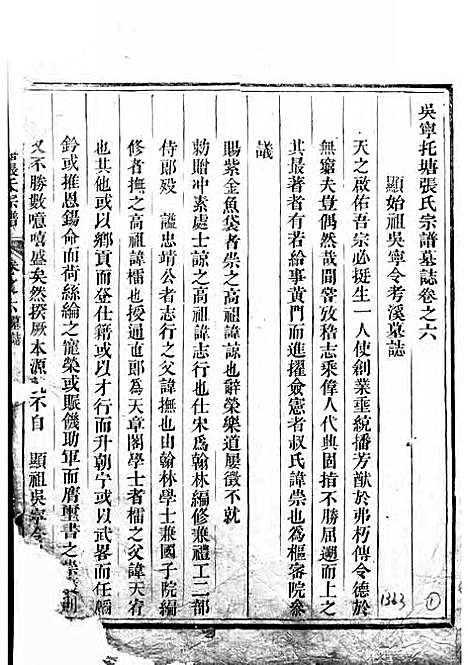 吳寧托塘張氏宗譜墓誌卷之六
顯始祖吳寧令考溪墓誌
天之啟佑吾宗必挺生一人使創業垂統播芳猷於弗朽傳令德於
無窮夫豈偶然哉間嘗攷稽志乘偉人代典固指不勝屈遡而上之
其最著者有若給事黃門而進擢僉憲者叔氏諱崇也為樞密院叅
議
賜紫金魚袋者崇之高祖諱諒也辭榮樂道屢徵不就
勅贈冲素處士諒之高祖諱志行也仕宋為翰林編修兼禮工二部
侍郎歿 謚忠靖公者志行之父諱撫也由翰林學士兼國子院編
修者撫之高祖諱櫺也授通直郎為天章閣學士者櫺之父諱天育
也其他或以鄉貢而登仕籍或以才行而升朝宁或以武畧而任
鈐或推恩錫命而荷絲綸之寵榮或賑饑助軍而膺璽書之崇
又不勝數噫嘻盛矣然揆厥本源 不自 顯祖吳寧令
張氏宗譜 卷之六墓誌
1363
1